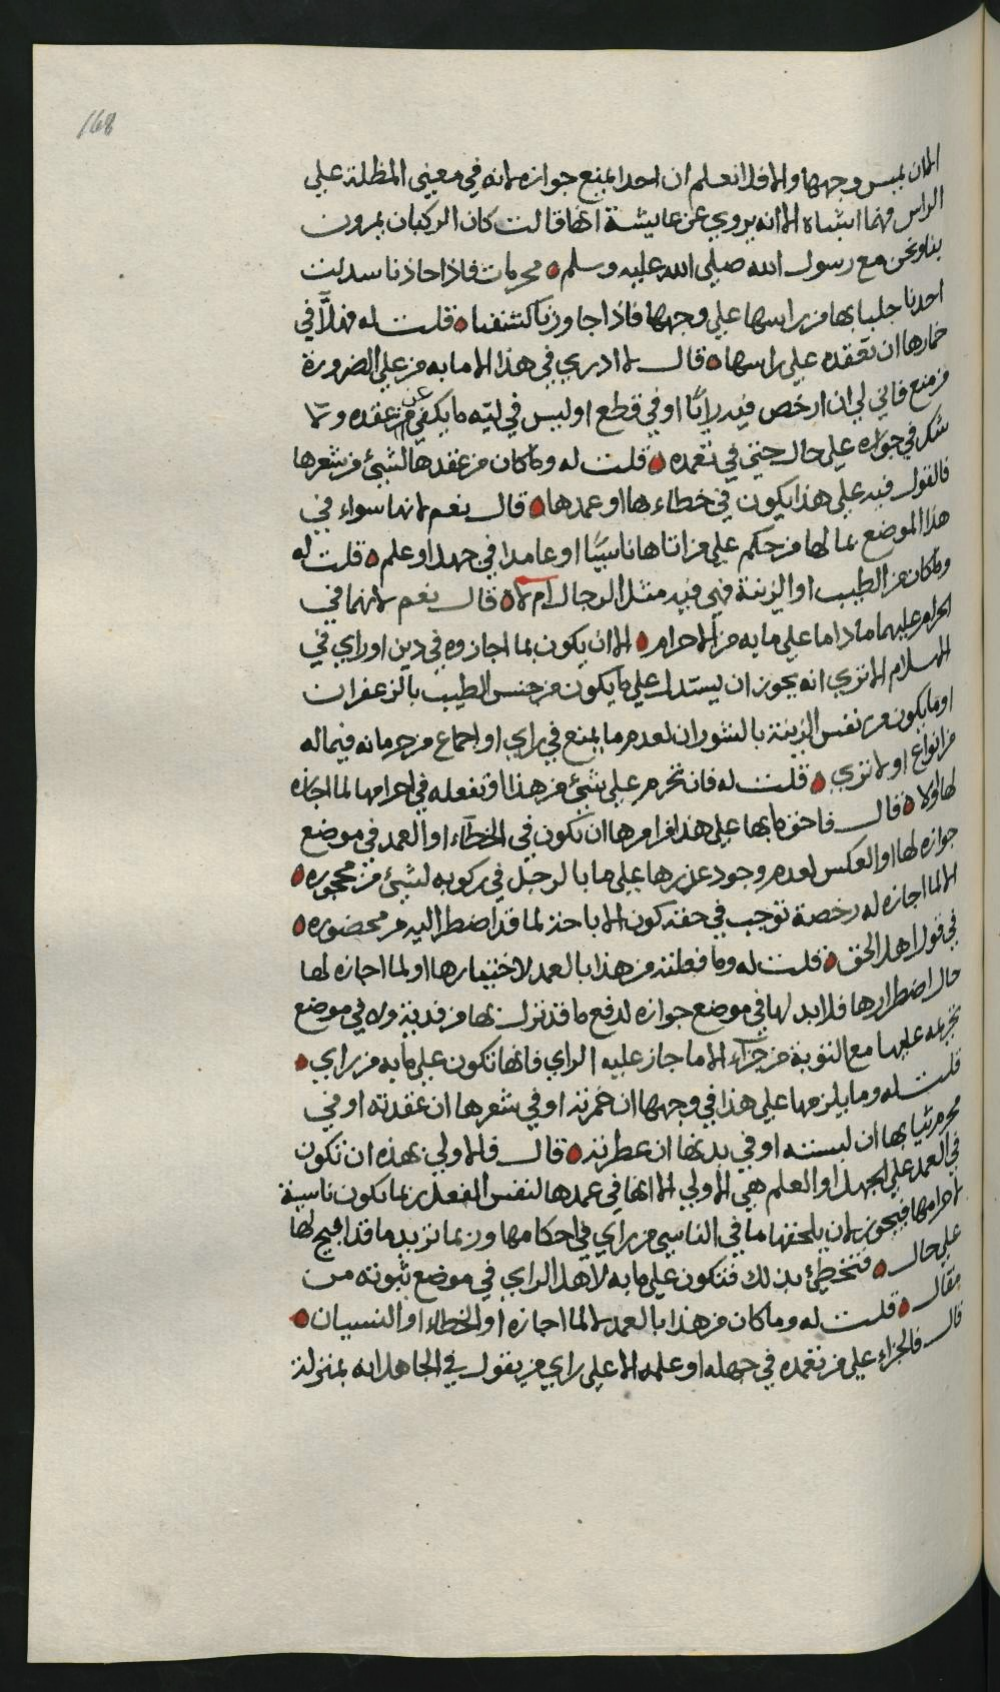 168
الا ان يمس وجهها والا فلا نعلم ان احدا يمنع جوازه لانه في معني المظلة علي
الراس فهما اشباه الا انه يروي عن عايشة انها قالت كان الركبان يمرون
بنا ونحن مع رسول الله صلي الله عليه وسلم محرمات فاذا حاذنا سدلت
احدنا جلبابها من راسها علي وجهها فاذا جاوزنا كشفنا قلت له فهلّا في
خمارها ان تعقده علي راسها قال لا ادري في هذا الا ما به من علي الضرورة
من منع فاني لي ان ارخص فيه رايًا او في قطع اوليس في ليّه ما يكفي عن عقده ولا
شك في جوازه علي حال حتي في تعمده قلت له وما كان من عقدها لشيئ من شعرها
فالقول فيه علي هذا يكون في خطاءها او عمدها قال نعم لانهما سواء في
هذا الموضع بما لها من حكم علي من اتاها ناسيًا او عامدا في جهل او علم قلت له
وما كان من الطيب او الزينة فهي فيه مثل الرجال ام لا قال نعم لانهما في
الحرام عليهما ما داما علي ما به من الاحرام الا ان يكون بما اجازوه في دين او راي في
الاسلام الا تري انه يجوز ان يستدل علي ما يكون من جنس الطيب بالزعفران
او ما يكون من نفس الزينة بالنشوران لعدم ما يمنع في راي او اجماع من حرمانه فيما له
من انواع اولا تري قلت له فان تحرم علي شيئ من هذا او تفعله في احرامها لما اجازه
لها اولا قال فاحق ما بها علي هذا من امرها ان تكون في الخطاء او العمد في موضع
جوازه لها او العكس لعدم وجود عذرها علي ما بالرجل في ركوبه لشيئ من محجوره
الا لما اجازه له رخصة توجب في حقه كون الاباحة لما قد اضطر اليه من محضوره
في قول اهل الحق قلت له وما فعلته من هذا بالعمد لاختيارها او لما اجازه لها
حال اضطرارها فلا بد لها في موضع جوازه لدفع ما قد نزل بها من فدية ولا في موضع
تحريمه عليها مع التوبة من جزاء الا ما جاز عليه الراي فانها تكون علي ما به من راي
قلت له وما يلزمها علي هذا في وجهها ان خمرته او في شعرها ان عقدته او في
محرم ثيابها ان لبسته او في بدنها ان عطرته قال فالاولي بهذه ان تكون
في العمد علي الجهل او العلم هي الاولي الا انها في عمدها لنفس الفعل ربما تكون ناسية
لاحرامها فيجوز لان يلحقها ما في الناسي من راي في احكامها وربما تريد ما قد ابيح لها
علي حال فتخطئ بذلك فتكون علي ما به لاهل الراي في موضع ثبوته من
مقال قلت له وما كان من هذا بالعمد لا لما اجازه او الخطاء او النسيان
قال فالجزاء علي من تعمده في جهله او علمه الا علي راي من يقول في الجاهل انه بمنزلة